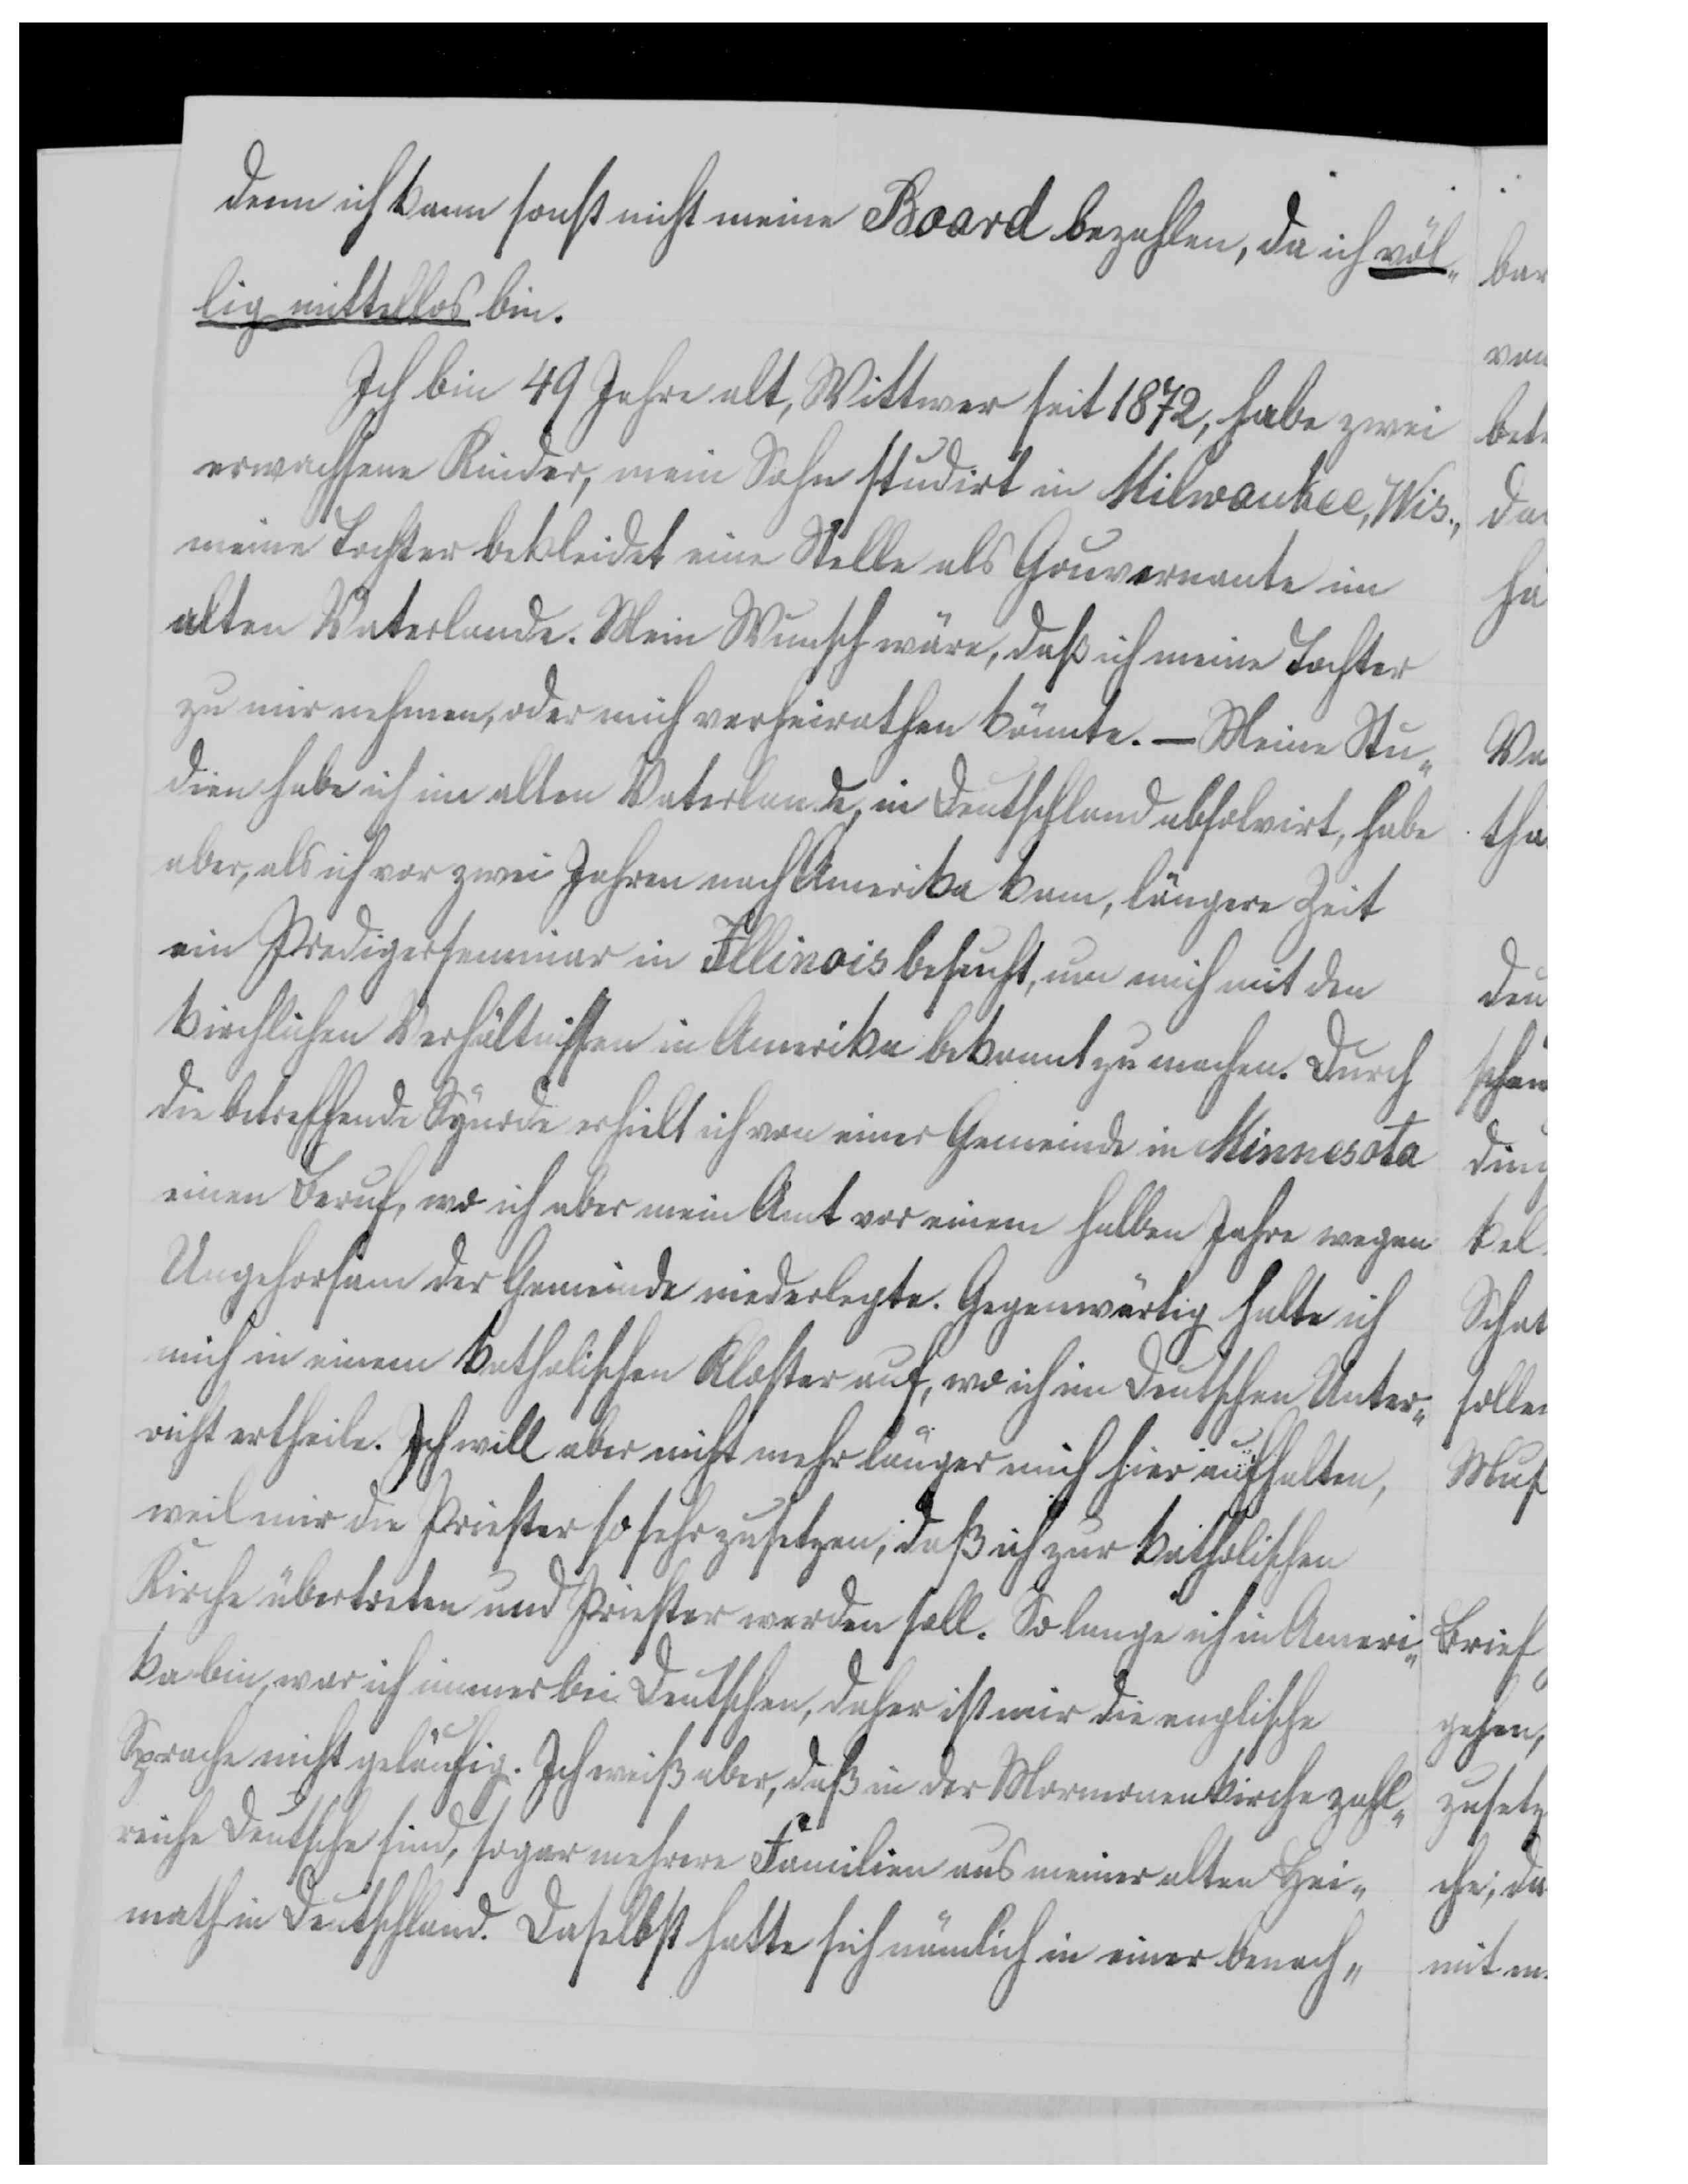 denn ich kann sonst nicht meine Board bezahlen, da ich völ„
lig mittellos bin.
Ich bin 49 Jahre alt, Wittwer seit 1872, habe zwei
erwachsene Kinder, mein Sohn studirt in Milwaukee, Wis.,
meine Tochter bekleidet eine Stelle als Gouvernante im
alten Vaterlande. Mein Wunsch wäre, daß ich meine Tochter
zu mir nehmen, oder mich verheirathen könnte. — Meine Stu„
dien habe ich im alten Vaterlande, in Deutschland absolvirt, habe
aber, als ich vor zwei Jahren nach Amerika kam, längere Zeit
ein Predigerseminar in Illinois besucht, um mich mit den
kirchlichen Verhältnissen in Amerika bekannt zu machen. Durch
die betreffende Synode erhielt ich von einer Gemeinde in Minnesota
einen Beruf, wo ich aber mein Amt vor einem halben Jahre wegen
Ungehorsam der Gemeinde niederlegte. Gegenwärtig halte ich
mich in einem katholischen Kloster auf, wo ich im Deutschen Unter„
richt ertheile. Ich will aber nicht mehr länger mich hier aufhalten,
weil mir die Priester so sehr zusetzen, daß ich zur katholischen
Kirche übertreten und Priester werden soll. So lange ich in Ameri„
ka bin, war ich immer bei Deutschen, daher ist mir die englische
Sprache nicht geläufig. Ich weiß aber, daß in der Mormonenkirche zahl„
reiche Deutsche sind, sogar mehrere Familien aus meiner alten Hei„
math in Deutschland. Daselbst hatte sich nämlich in einer benach„
bar
von
bet
da
hä
Va
tha
den
schen
ding
kel
Schat
sollen
Muß
Brief
gehen,
zusetz
che, da
mit m